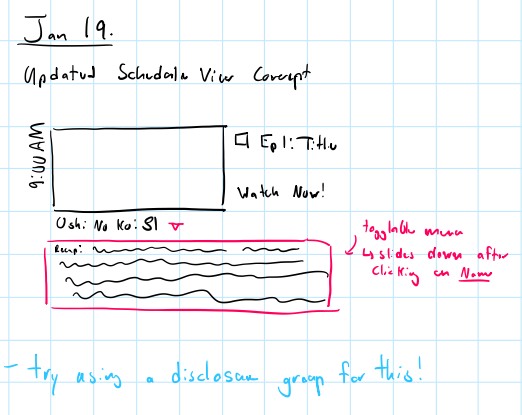 Jan 19.
Updated Schedule View Concept
9:00AM
Ep 1: Title
Watch Now!
Oshi No Ko: S1
Recap:
togglable menu
↳ slides down after
clicking on Name
- try using a disclosure group for this!